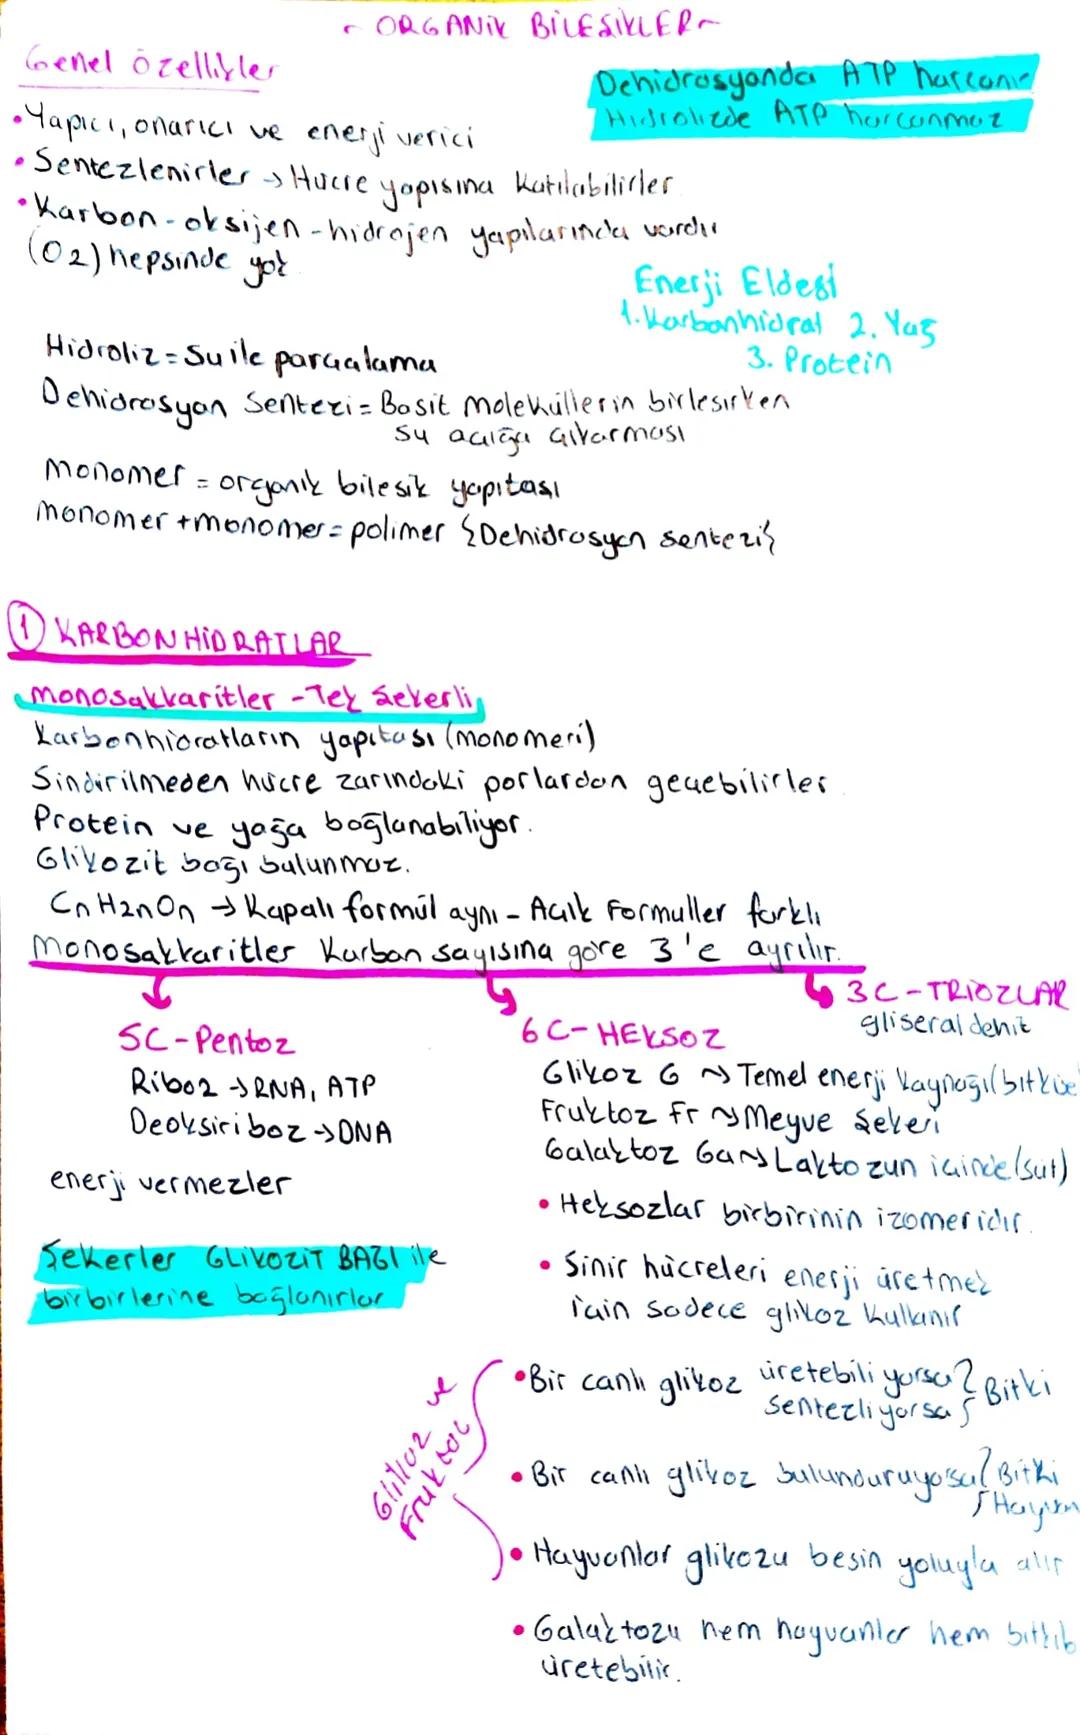 ~ ORGANİK BİLEŞİKLER ~
Genel özellikler
Dehidrasyonda ATP harcanır
Hidrolizde ATP harcanmaz
• Yapıcı, onarıcı ve enerji verici
• Sentezlenirler → Hücre yapısına katılabilirler
• Karbon - oksijen - hidrojen yapılarında vardır
(O2) hepsinde yok
Enerji Eldesi
1. Karbonhidrat 2. Yağ
3. Protein
Hidroliz = Su ile parçalama
Dehidrasyon Sentezi = Basit moleküllerin birleşirken
su açığa çıkarması
monomer = organik bileşik yapıtaşı
monomer + monomer = polimer {Dehidrasyon sentezi}
1 KARBONHİDRATLAR
monosakkaritler - Tek Şekerli
Karbonhidratların yapıtası (monomeri)
Sindirilmeden hücre zarındaki porlardan geçebilirler
Protein ve yağa bağlanabiliyor.
Glikozit bağı bulunmaz.
CnH2nOn → Kapalı formül aynı - Açık Formüller farklı
Monosakkaritler Karbon sayısına göre 3'e ayrılır.
3C - TRİOZLAR
gliseraldehit
5C - Pentoz
Riboz → RNA, ATP
Deoksiriboz → DNA
enerji vermezler
Şekerler GLİKOZİT BAĞI ile
birbirlerine bağlanırlar
6C - HEKSOZ
Glikoz G ~> Temel enerji kaynağı (bitkide
Fruktoz Fr ~> Meyve Şekeri
Galaktoz Ga ~> Laktozun içinde (süt)
• Heksozlar birbirinin izomeridir.
• Sinir hücreleri enerji üretmek
için sadece glikoz kullanır
Glikoz ve
Fruktoz
• Bir canlı glikoz üretebiliyorsa } Bitki
sentezliyorsa
• Bir canlı glikoz bulunduruyorsa } Bitki
Hayvan
• Hayvanlar glikozu besin yoluyla alır
• Galaktozu hem hayvanlar hem
üretebilir.